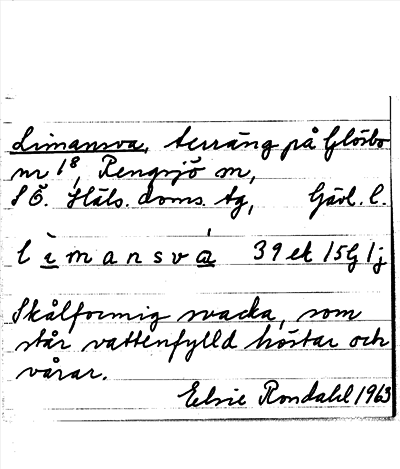 Limansva, terräng på Glösbo
nr 1⁸, Rengsjö sn,
S Ö. Häls. doms. tg, Gävl. l.
l i m a n s v a 39 ek 15G 1j
Skålformig svacka, som
står vattenfylld höstar och
vårar.
Elsie Rondahl 1963